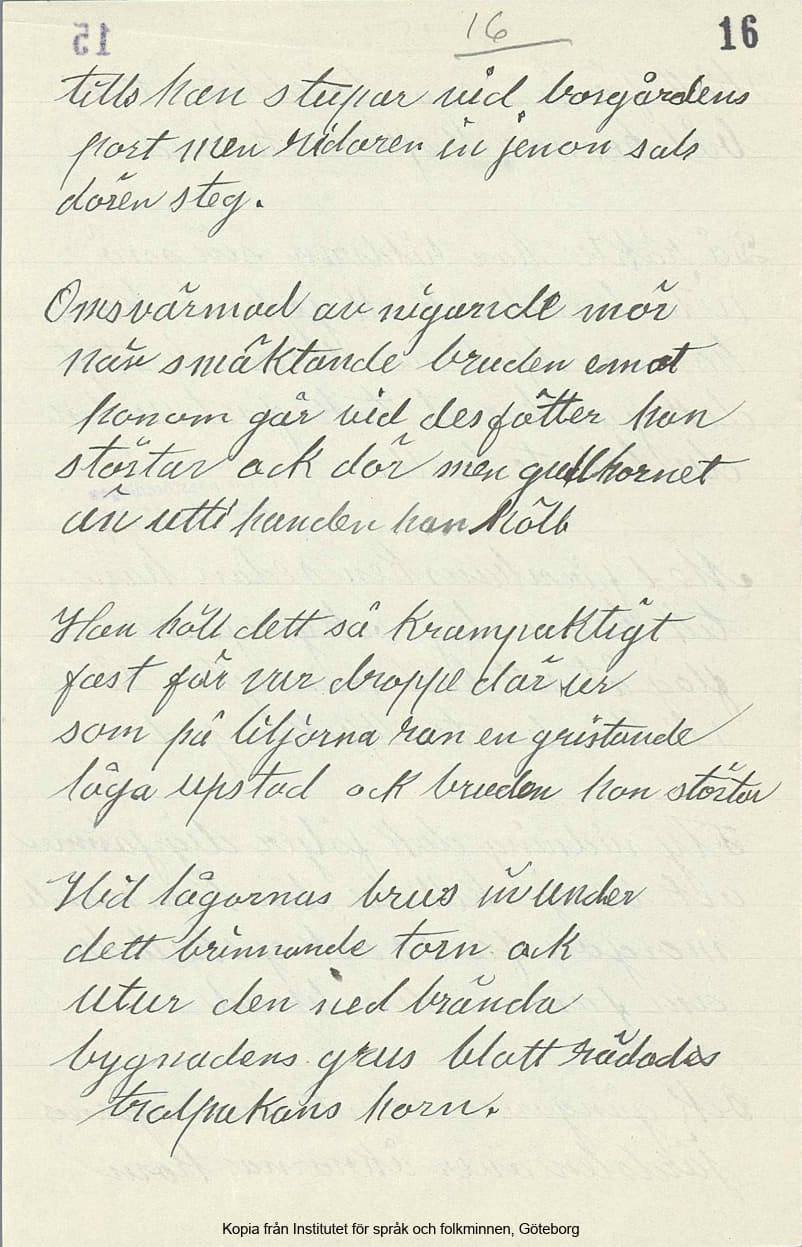 16
15
16
tills han stupar vid borgårdens
port men ridaren in jenon sals
dören steg.
Omsvärmad av nigande mör
när smäktande bruden emot
honom går vid des fötter han
störtar ock dör men gullhornet
än utti handen han hölb
Han höll dett så krampaktigt
fast för var droppe där ur
som på liljorna ran en gnistande
låga upstod ock bruden hon störtar
Vid lågornas brus in under
dett brinnande torn ock
utur den ned brända
bygnadens grus blott rädades
trolpakans horn.
Kopia från Institutet för språk och folkminnen, Göteborg